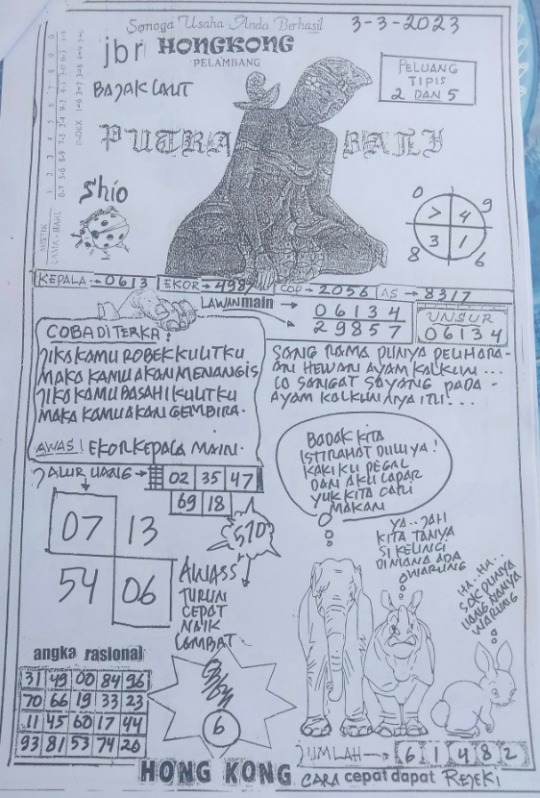 Semoga Usaha Anda Berhasil
3-3-2023
jbr HONGKONG
PELAMBANG
BAJAK LAUT
PELUANG
TIPIS
2 DAN 5
PUTRA BALI
Shio
0 9
7 4
3 1
8 6
KEPALA → 0613 EKOR → 498 COP → 2056 AS → 8317
LAWAN main → 06134
29857
UNSUR
06134
COBA DITERKA:
JIKA KAMU ROBEK KULITKU
MAKA KAMU AKAN MENANGIS
JIKA KAMU BASAHI KULITKU
MAKA KAMU AKAN GEMBIRA.
AWAS! EKOR KEPALA MAIN.
SANG RAMA PUNYA PELIHARA-
AN HEWAN AYAM KALKUN...
IA SANGAT SAYANG PADA-
AYAM KALKUNNYA ITU...
JALUR UANG → 02 35 47
69 18
07 13
54 06
570
AWASS
TURUN
CEPAT
NAIK
LAMBAT
BADAK KITA
ISTIRAHAT DULU YA!
KAKI KU PEGAL
DAN AKU LAPAR
YUK KITA CARI
MAKAN
YA..JAH
KITA TANYA
SI KELINCI
DIMANA ADA
WARUNG
HA..HA..
SOK PUNYA
UANG TANYA
WARUNG
angka rasional
31 49 00 84 96
70 66 19 33 23
11 45 60 17 44
93 81 53 74 20
6
JUMLAH → 6 1 4 8 2
HONG KONG
CARA cepat dapat REJEKI